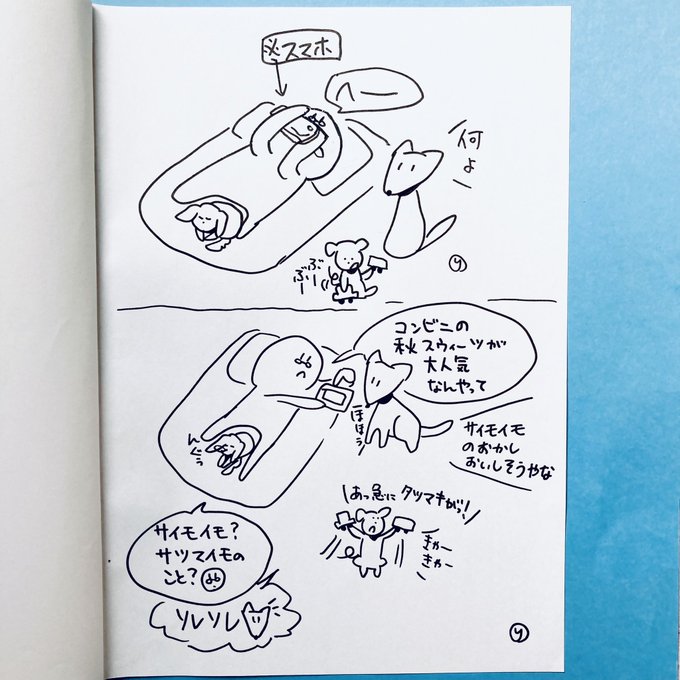 ※スマホ
へー
何よ
ぶーぶー
り
コンビニの
秋スウィーツが
大人気
なんやって
ほほう
サイモイモ
のおかし
おいしそうやな
んぐぅ
あっ急にタツマキがっ!
きゃー
きゃー
サイモイモ?
サツマイモの
こと?
ソレソレ
り